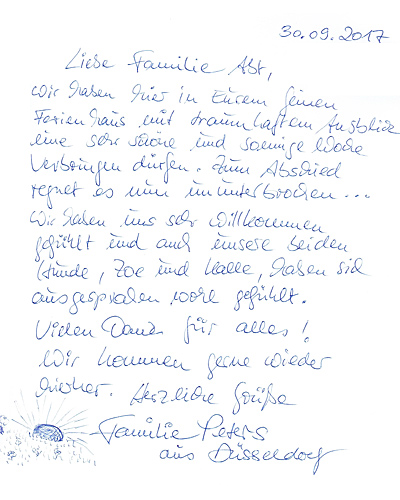 30.09.2017
Liebe Familie Abt,
wir haben hier in Eurem feinen
Ferienhaus mit traumhaftem Ausblick
eine sehr schöne und sonnige Woche
verbringen dürfen. Zum Abschied
regnet es nun ununterbrochen...
Wir haben uns sehr willkommen
gefühlt und auch unsere beiden
Hunde, Zoe und Kalle, haben sich
ausgesprochen wohl gefühlt.
Vielen Dank für alles!
Wir kommen gerne wieder
hierher. Herzliche Grüße
Familie Peters
aus Düsseldorf